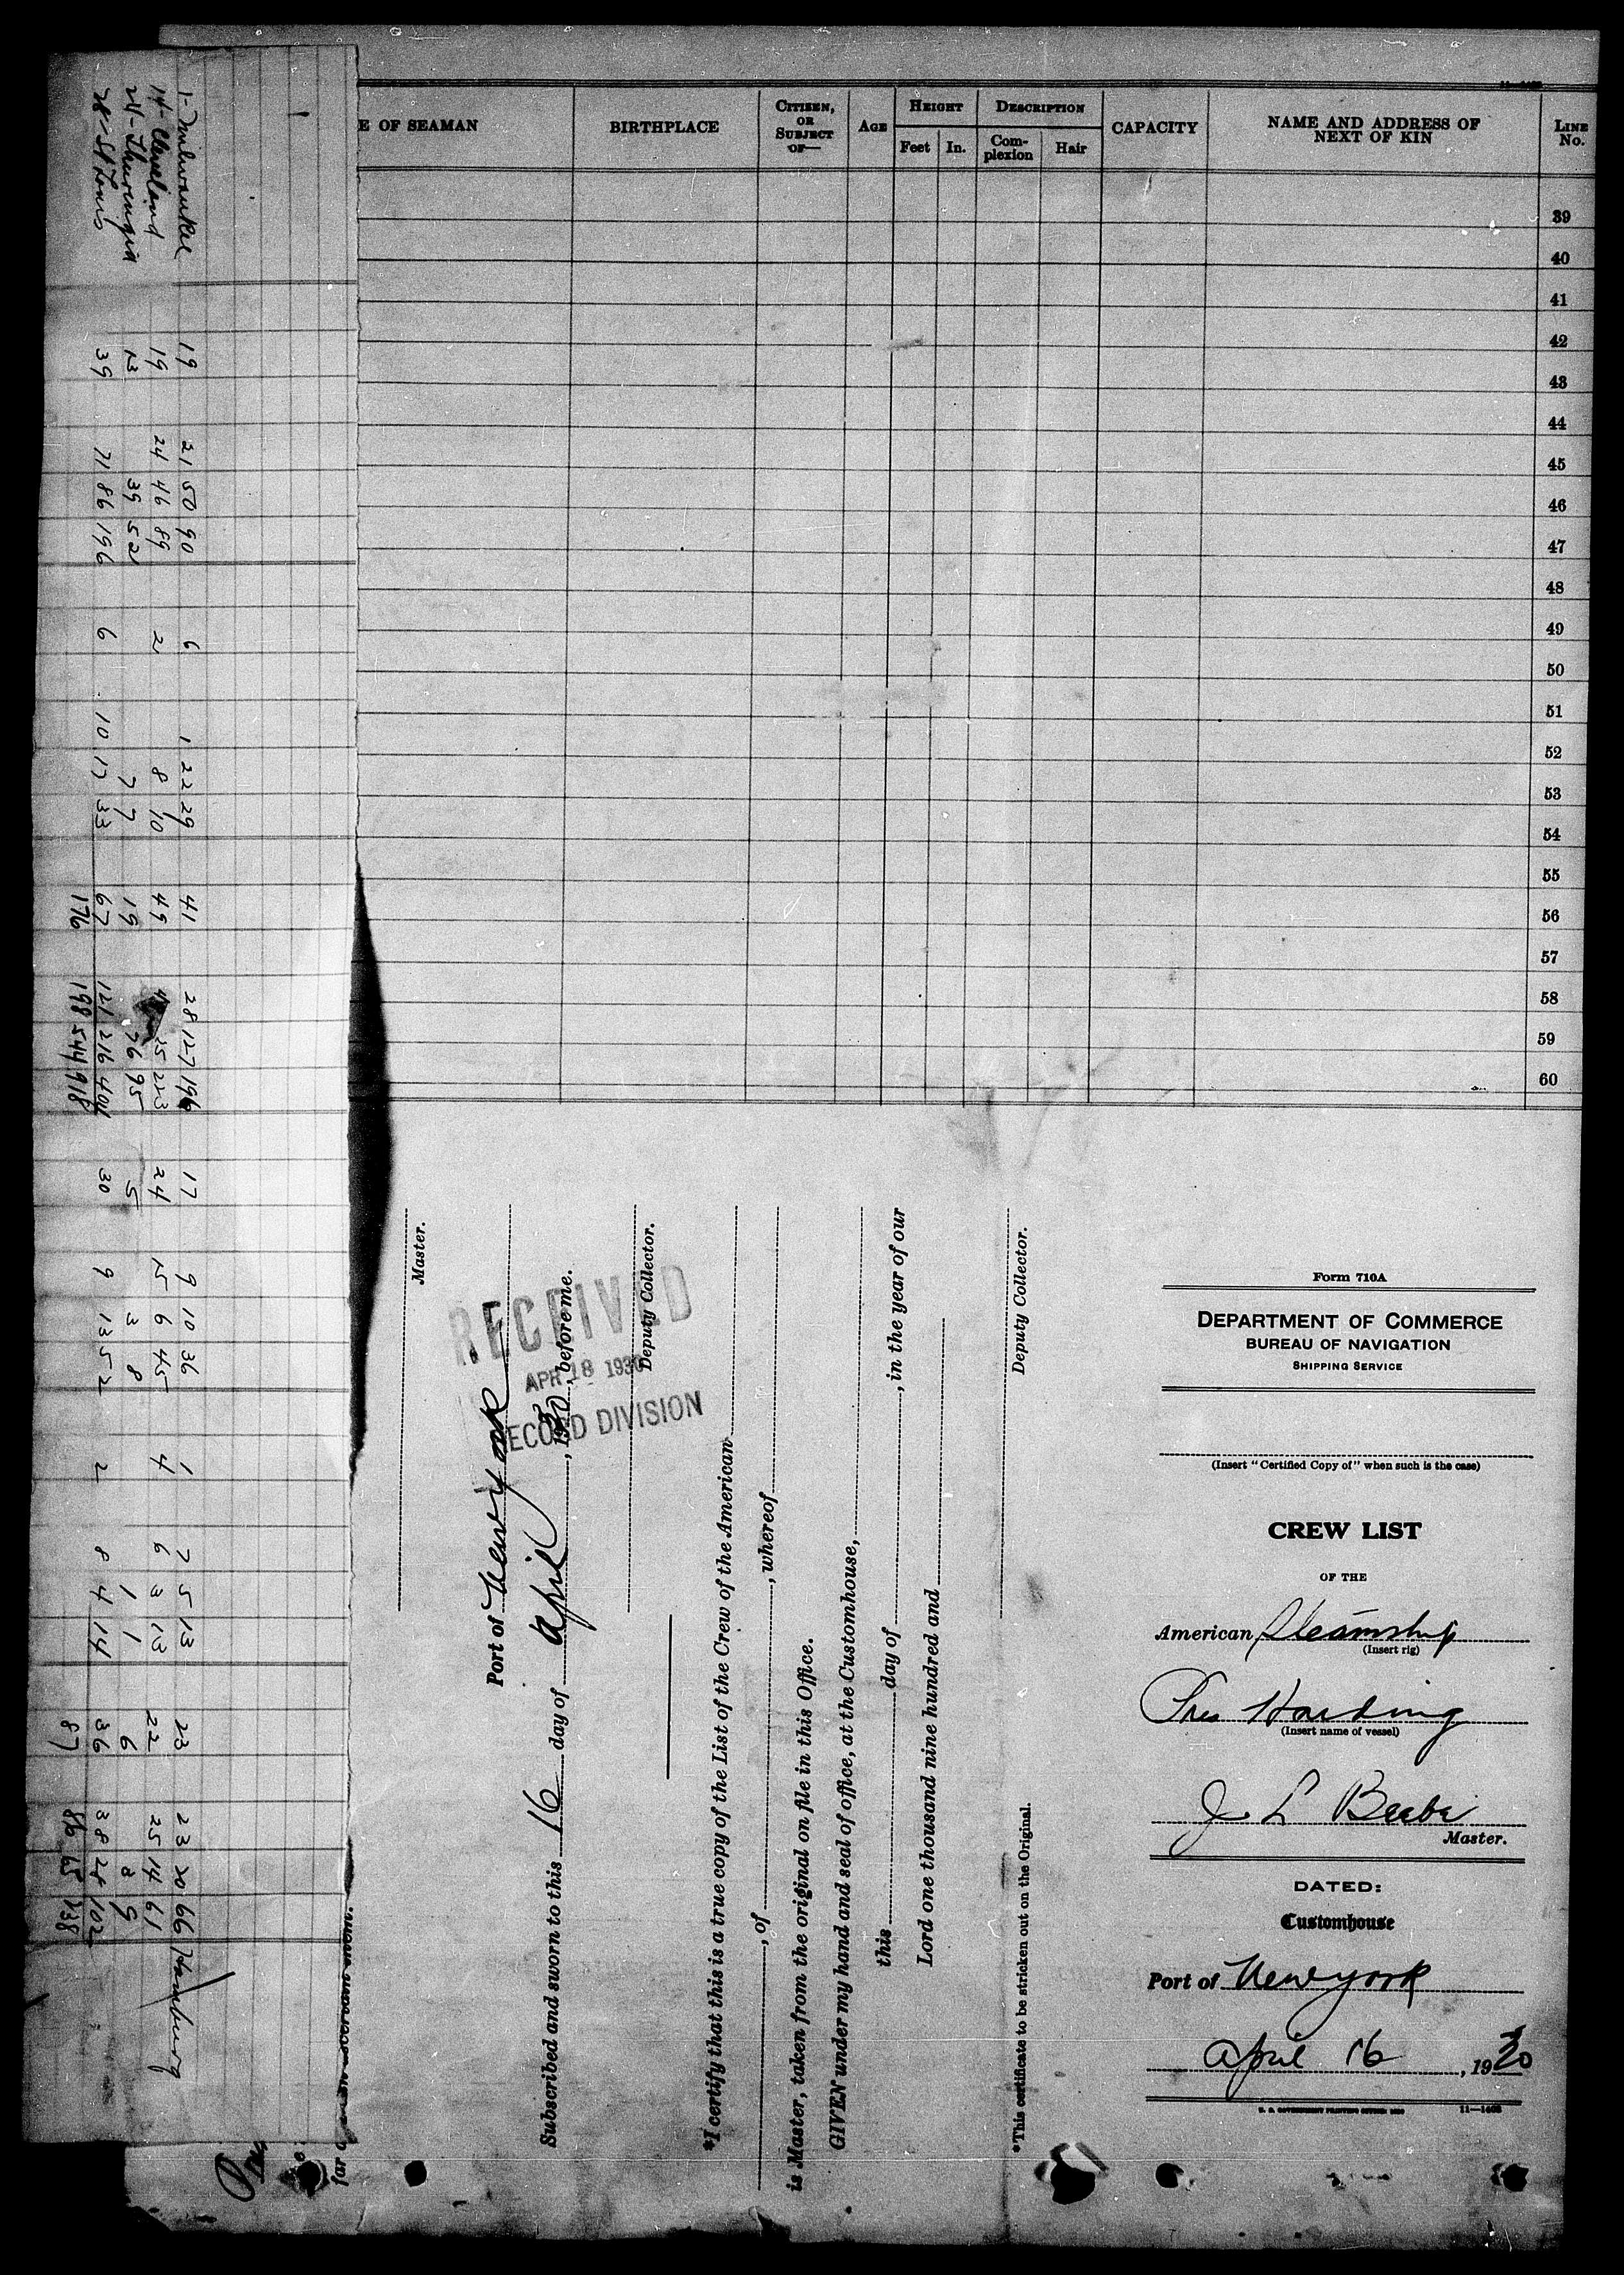 E OF SEAMAN
BIRTHPLACE
CITIZEN, OR SUBJECT OF—
AGE
HEIGHT
Feet
In.
DESCRIPTION
Com-plexion
Hair
CAPACITY
NAME AND ADDRESS OF NEXT OF KIN
LINE No.
39
40
41
42
43
44
45
46
47
48
49
50
51
52
53
54
55
56
57
58
59
60
1- Milwaukee 19 21 50 90 6 1 22 29 41 28 127 196 17 9 10 36 1 7 5 13 23 23 20 66 Hamburg
14- Cleveland 19 24 46 89 2 8 10 49 223 24 15 6 45 4 6 3 13 22 25 14 61
24- Thuringia 13 39 52 7 7 19 76 95 5 3 8 1 1 6 3 9
28- St Louis 39 71 86 196 6 10 17 33 67 121 216 404 30 9 13 52 2 8 4 14 36 38 28 102
176 198 544 918 87 86 65 238
Master.
Port of New York
Subscribed and sworn to this 16 day of April, 1930, before me.
Deputy Collector.
RECEIVED
APR 18 1930
RECORD DIVISION
*I certify that this is a true copy of the List of the Crew of the American
, of , whereof
is Master, taken from the original on file in this Office.
GIVEN under my hand and seal of office, at the Customhouse,
this day of , in the year of our
Lord one thousand nine hundred and
Deputy Collector.
*This certificate to be stricken out on the Original.
Form 710A
DEPARTMENT OF COMMERCE
BUREAU OF NAVIGATION
SHIPPING SERVICE
(Insert "Certified Copy of" when such is the case)
CREW LIST
OF THE
American Steamship
(Insert rig)
Pres Harding
(Insert name of vessel)
J L Beebe
Master.
DATED:
Customhouse
Port of New York
April 16, 1930
U. S. GOVERNMENT PRINTING OFFICE